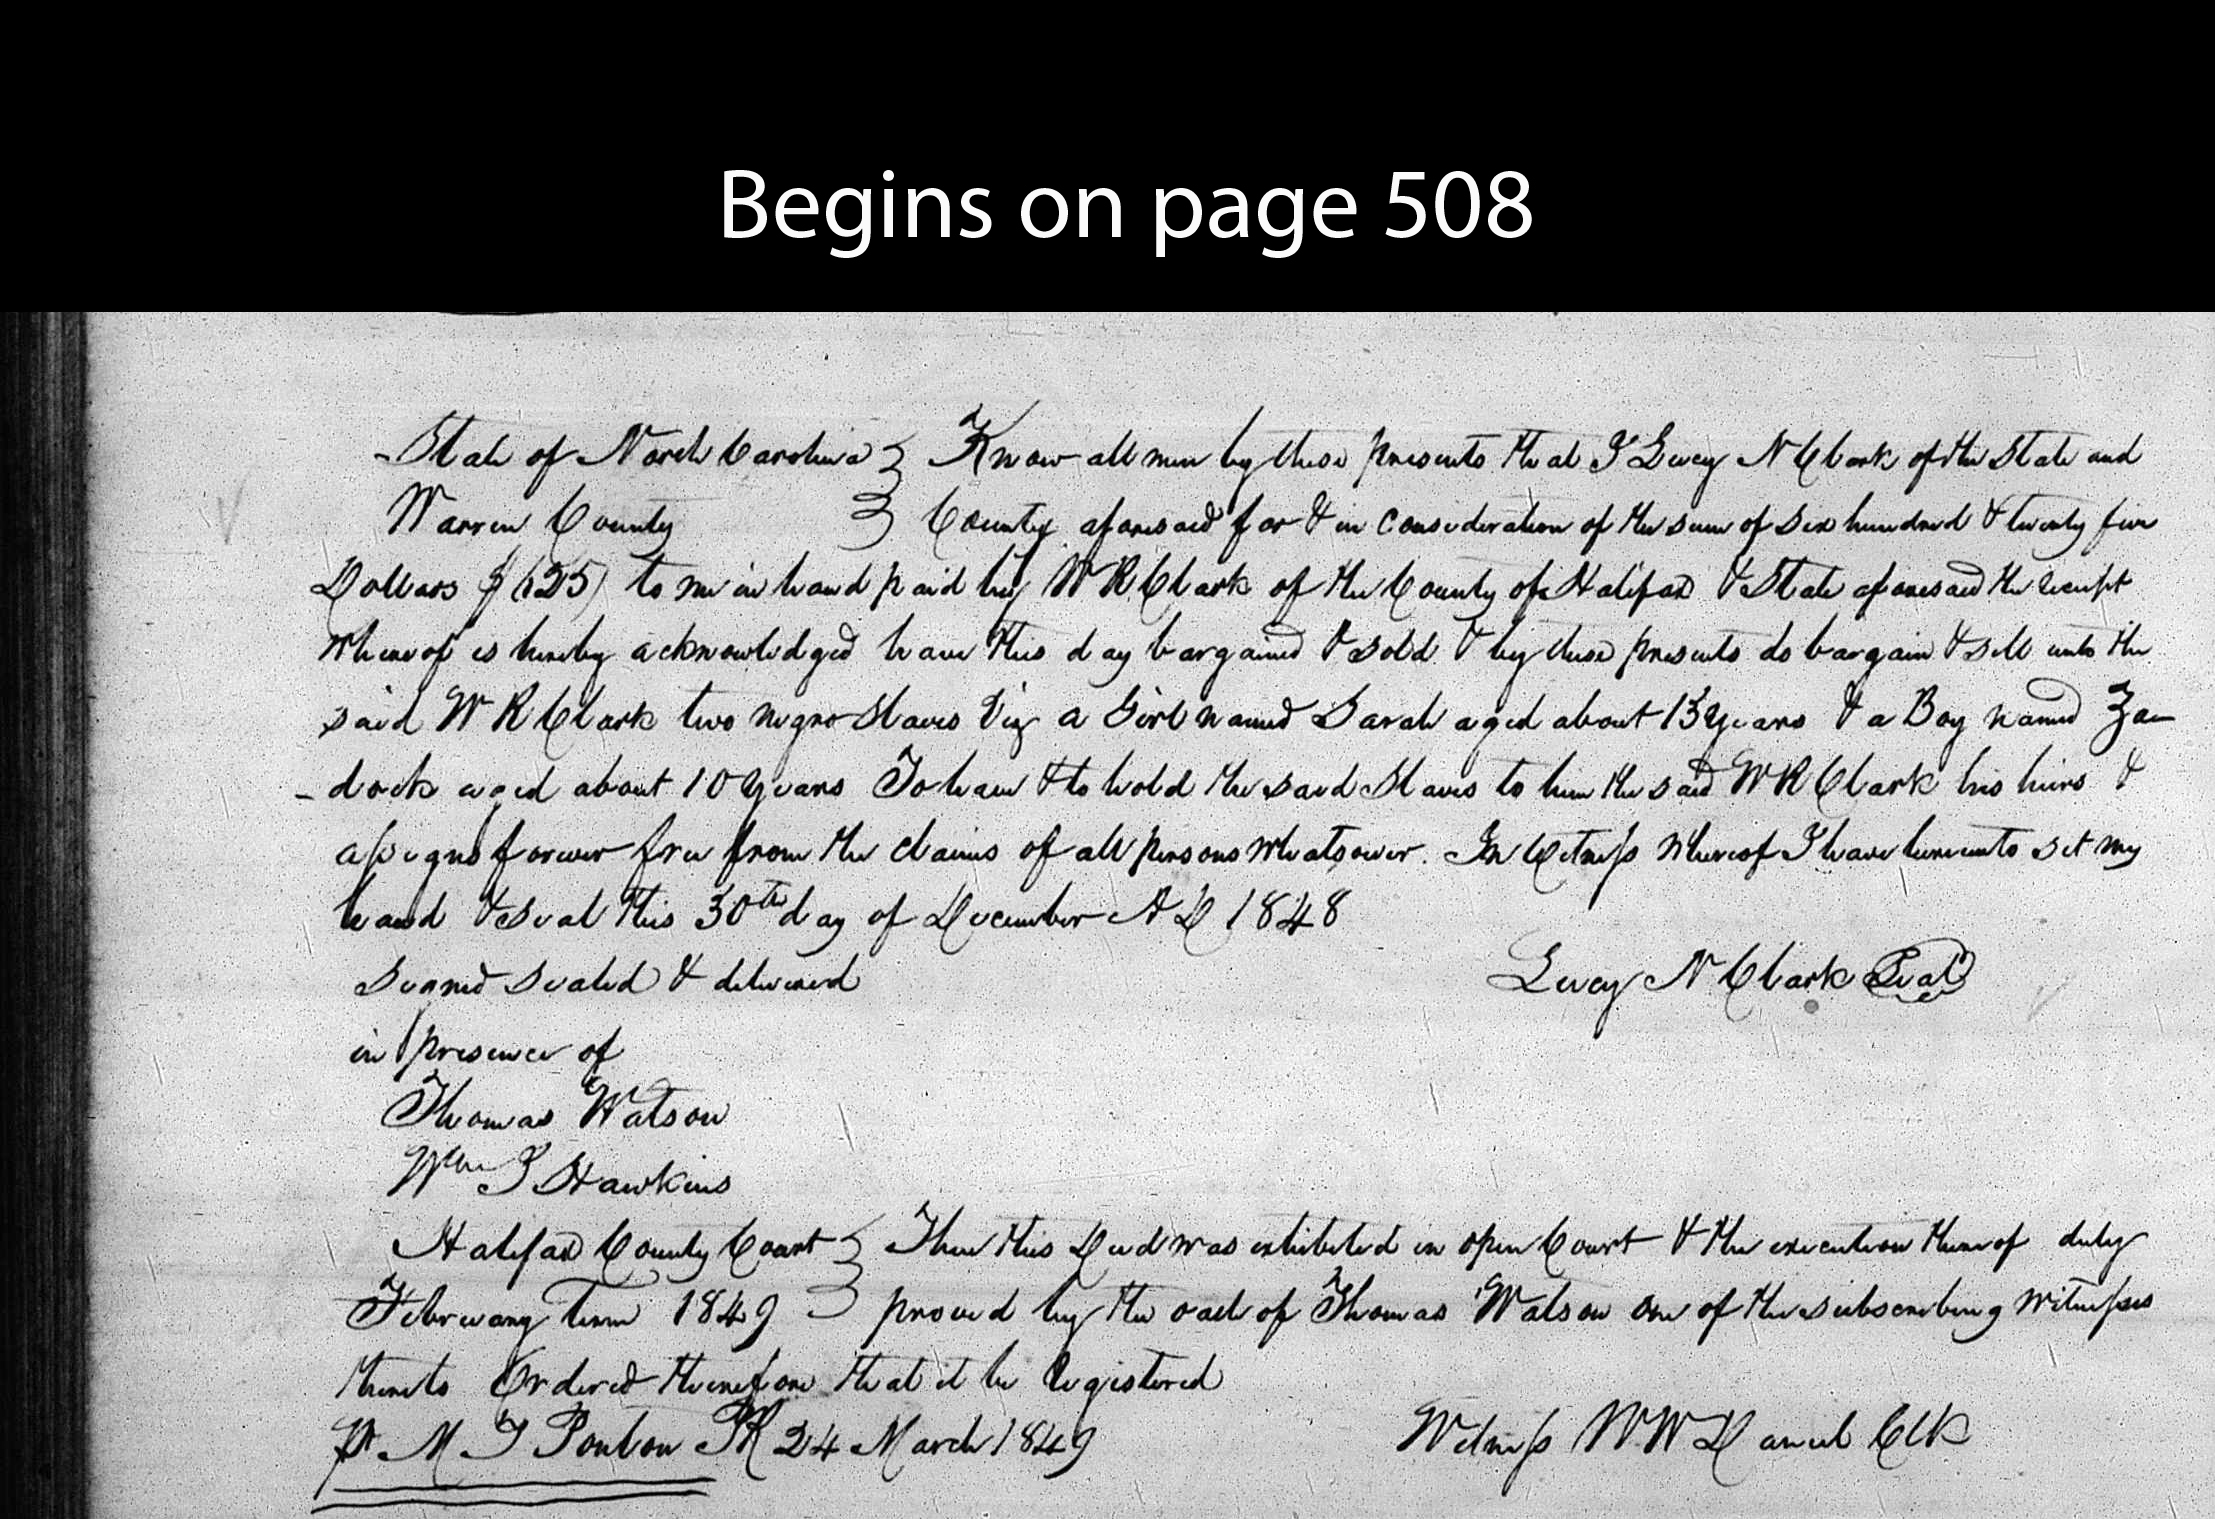 Begins on page 508
State of North Carolina } Know all men by these presents that I Lucy N Clark of the State and
Warren County } County aforesaid for & in consideration of the sum of six hundred & twenty five
Dollars $(625) to me in hand paid by W R Clark of the County of Halifax & State aforesaid the receipt
whereof is hereby acknowledged have this day bargained & sold & by these presents do bargain & sell unto the
said W R Clark two negro Slaves Viz a Girl named Sarah aged about 13 years & a Boy named Za-
- dock aged about 10 years To have & to hold the said Slaves to him the said W R Clark his heirs &
assigns forever free from the claims of all persons whatsoever. In Witness whereof I have hereunto set my
hand & seal this 30th day of December A D 1848
Signed sealed & delivered Lucy N Clark Seal
in presence of
Thomas Watson
Wm J Hawkins
Halifax County Court } Then this Deed was exhibited in open Court & the execution thereof duly
February term 1849 } proved by the oath of Thomas Watson one of the subscribing witnesses
thereto Ordered therefore that it be Registered
Pr M T Ponton PR 24 March 1849 Witness W W Daniel Clk